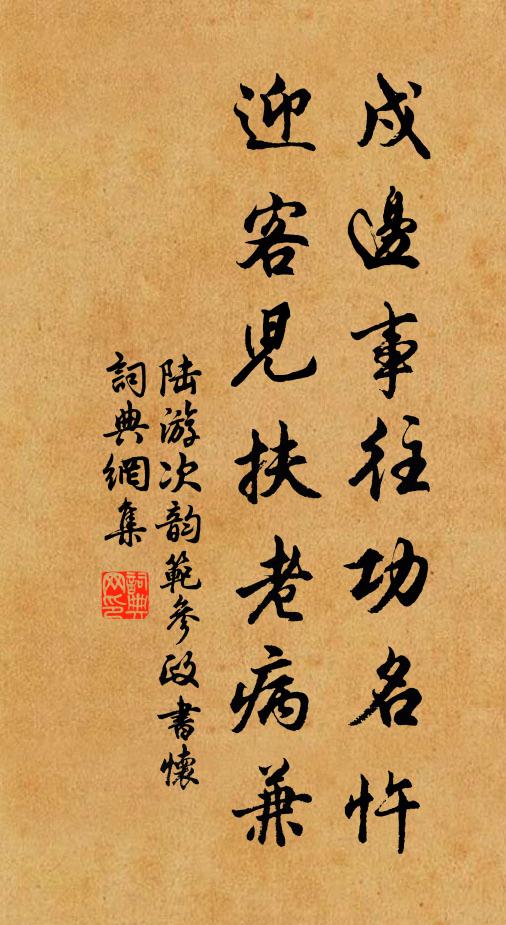 戍邊事往功名忤
迎客兒扶老病兼
陆游次韵範參政書懷
詞典網集
詞典网印